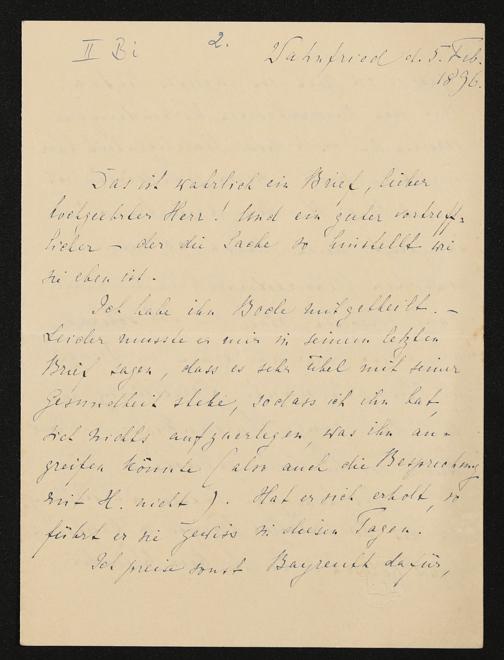 II Bi 2. Wahnfried d. 5. Feb.
1896.
Das ist wahrlich ein Brief, lieber
hochgeehrter Herr! Und ein guter vortreff-
licher – der die Sache so hinstellt wie
sie eben ist.
Ich habe ihn Bode mitgetheilt. –
Leider musste er mir in seinem letzten
Brief sagen, dass es sehr übel mit seiner
Gesundheit stehe, sodass ich ihn bat,
sich nichts aufzuerlegen, was ihn an-
greifen könnte (also auch die Besprechung
mit H. nicht). Hat er sich erholt, so
führt er sie gewiss in diesen Tagen.
Ich preise sonst Bayreuth dafür,